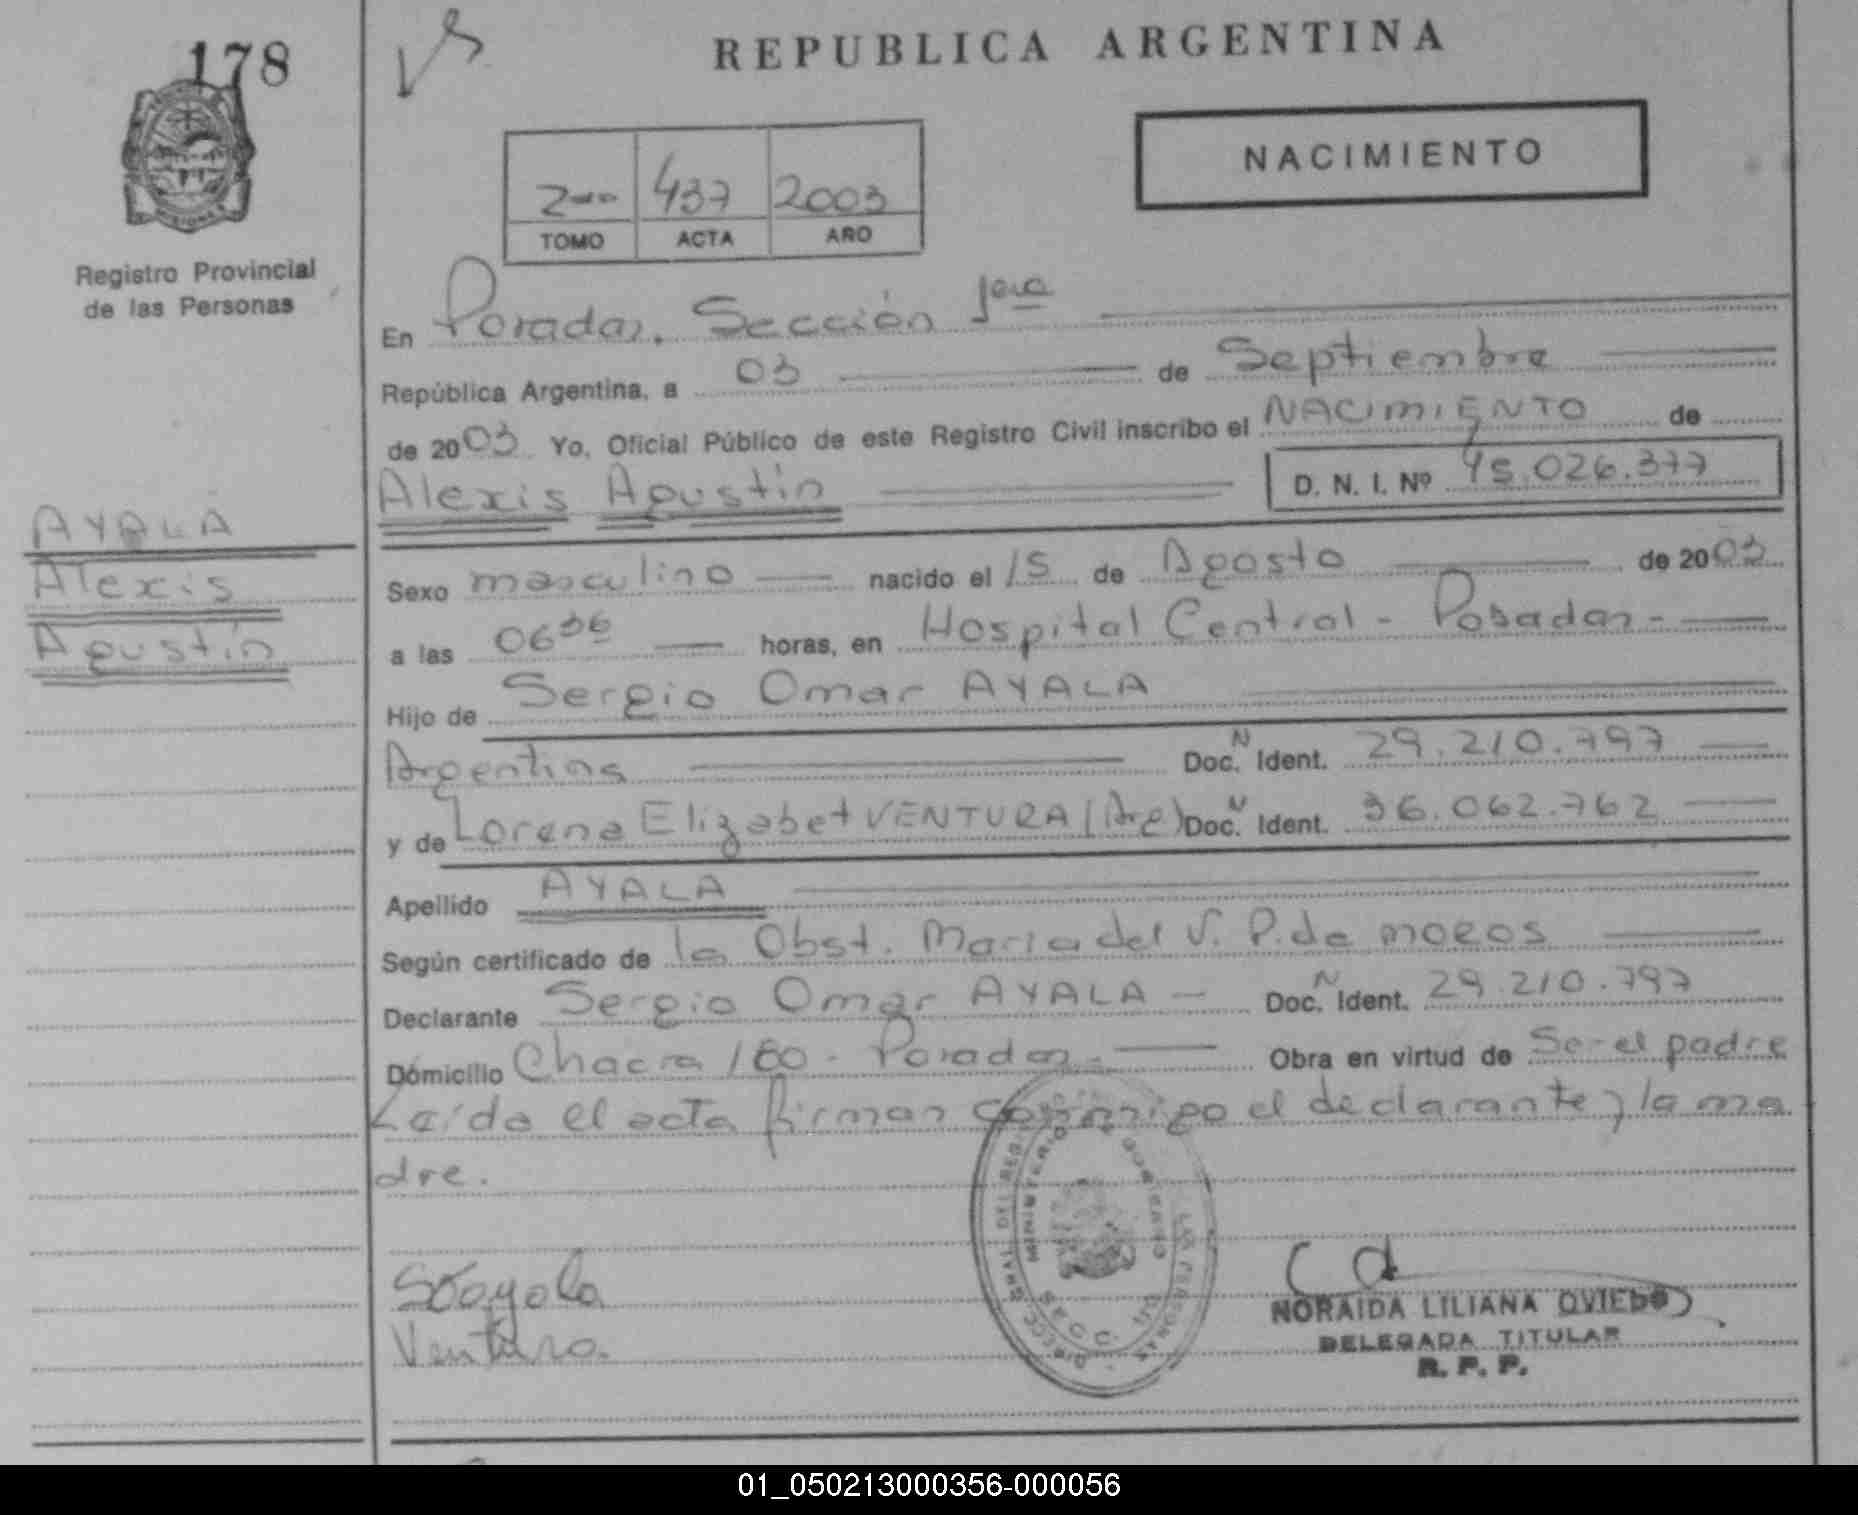 178
REPUBLICA ARGENTINA
NACIMIENTO
2 437 2003
TOMO ACTA AÑO
Registro Provincial
de las Personas
En Posadas, Sección 1era
República Argentina, a 03 de Septiembre
de 2003 Yo, Oficial Público de este Registro Civil inscribo el NACIMIENTO de
Alexis Agustín D. N. I. Nº 45.026.377
AYALA
Alexis
Agustín
Sexo masculino nacido el 15 de Agosto de 2003
a las 0636 horas, en Hospital Central - Posadas -
Hijo de Sergio Omar AYALA
Argentina Doc. N Ident. 29.210.797
y de Lorena Elizabet VENTURA (Arg) Doc. N Ident. 36.062.762
Apellido AYALA
Según certificado de la Obst. Maria del V. P. de MOROS
Declarante Sergio Omar AYALA - Doc. N Ident. 29.210.797
Domicilio Chacra 180 - Posadas - Obra en virtud de Ser el padre
Leída el acta firman conmigo el declarante y la ma
dre.
MINISTERIO DE GOBIERNO
SECC. 1ra
Ventura.
NORAIDA LILIANA OVIEDO
DELEGADA TITULAR
R. P. P.
01_050213000356-000056